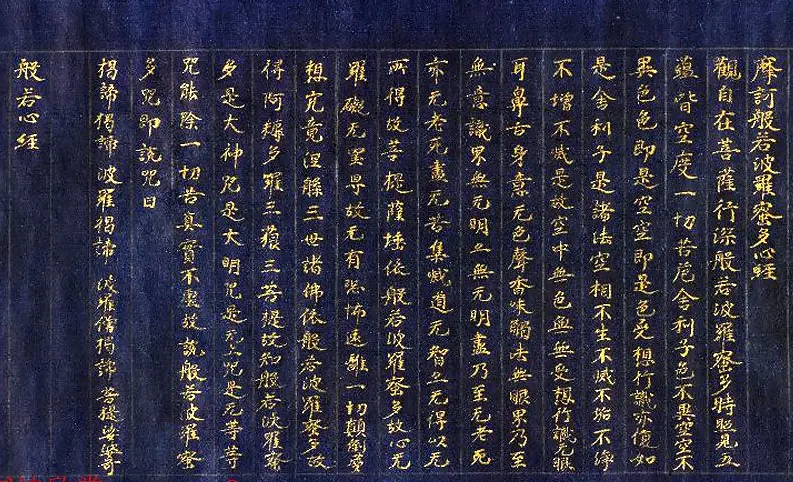 摩訶般若波羅蜜多心經
觀自在菩薩行深般若波羅蜜多時照見五
蘊皆空度一切苦厄舍利子色不異空空不
異色色即是空空即是色受想行識亦復如
是舍利子是諸法空相不生不滅不垢不淨
不增不減是故空中無色無無受想行識无眼
耳鼻舌身意无色聲香味觸法無眼界乃至
無意識界無无明亦無无明盡乃至无老死
亦无老死盡无苦集滅道无智亦无得以无
所得故菩提薩埵依般若波羅蜜多故心无
罣礙无罣导故无有恐怖遠離一切顛倒夢
想究竟涅槃三世諸佛依般若波羅蜜多故
得阿耨多羅三藐三菩提故知般若波羅蜜
多是大神咒是大明咒是无上咒是无等等
咒能除一切苦真實不虛故說般若波羅蜜
多咒即說咒曰
揭諦揭諦波羅揭諦 波羅僧揭諦 菩提娑婆訶
般若心經